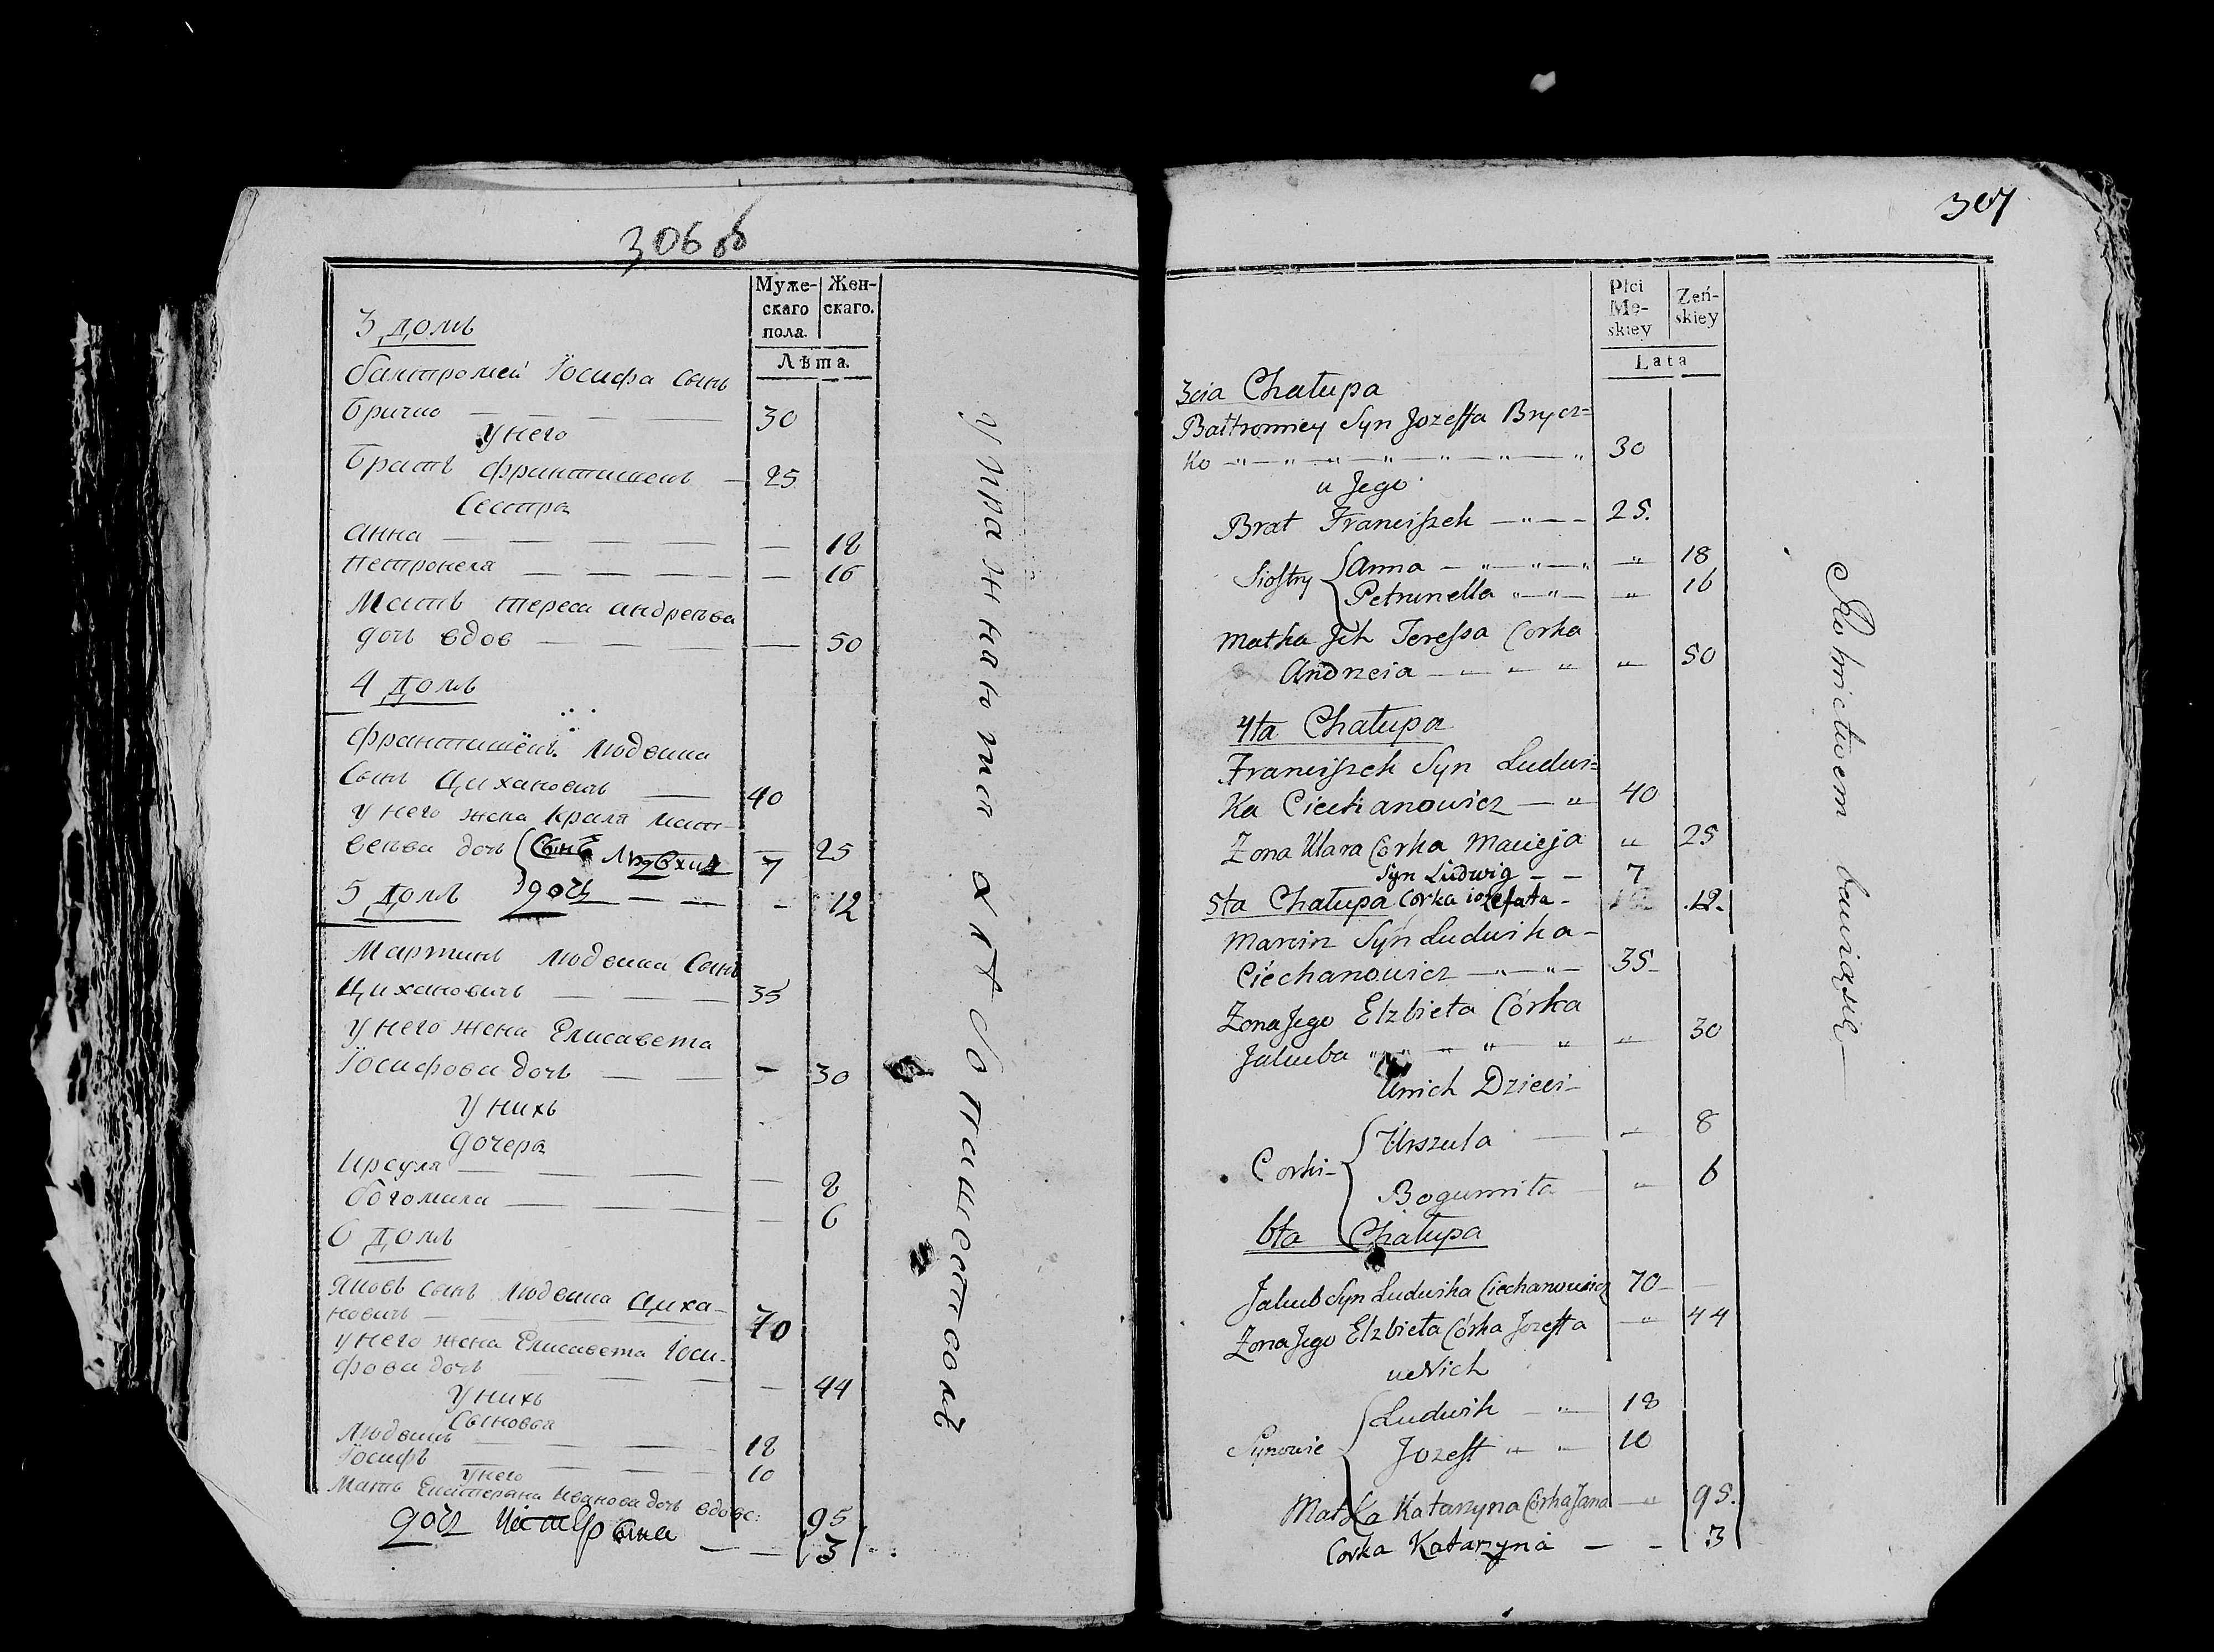 306 об
Муже-
скаго
пола.
Жен-
скаго.
Лѣта.
3 домъ
балтромей Іосифа сынъ
бричко — — — 30
У него
братъ франтишекъ — 25
Сестра
анна — — — — — 18
петронеля — — — — — 16
Мать тереса андреева
дочь вдов — — — — 50
4 домъ
франтишекъ людвика
сынъ Цихановичъ — 40
у него жена Краля мат-
веева дочь — 25
Сынъ Людвхик 7
5 домъ дочь — — — - 12
Мартинъ людвика Сынъ
Цихановичъ — — — 35
у него жена Елисавета
Іосифова дочь — — - 30
у нихъ
дочера
Урсуля — — — — — 8
богомила — — — — 6
6 домъ
яковъ сынъ людвика Циха-
новичъ — 70
у него жена Елисавета Іоси-
фова дочь — — — 44
у нихъ
Сыновья
Людвикъ — — — — 18
Іосифъ — — — — 10
у него
Мать Екатерина Иванова дочь вдова: 95
дочь — — 3
упражняются хлѣбопашествомъ
307
Płci
Mę-
skiey
Zeń-
skiey
Lata
3cia Chałupa
Bałtromiey Syn Jozeffa Brycz=
ko — " — " — " — " — " — " — " 30
u Jego
Brat Franciszek — " — — 25.
Siostry { Anna — " — " — " — " 18
Petrunella " — " — — " 16
Matka Jch Teressa Corka
Andrzeia — " — " " " 50
4ta Chałupa
Franciszek Syn Ludwi=
ka Ciechanowicz — " 40
Zona Klara Corka Macieja " 25
Syn Ludwig — — 7
5ta Chałupa Corka iozefata - .12.
Marcin Syn Ludwika —
Ciechanowicz — " — " — 35 —
Zona Jego Elzbieta Córka
Jakuba " " — " " " 30
U nich Dzieci —
Corki — { Urszula — — 8
Bogumiła — " 6
6ta Chałupa
Jakub Syn Ludwika Ciechanowicz 70 — —
Zona Jego Elzbieta Córka Jozeffa — " 44
u Nich
Synowie { Ludwik — " — 18
Jozeff " — " — 10
Matka Katarzyna Córka Jana — " 95.
Corka Katarzyna — — 3
Rolnictwem bawią się —